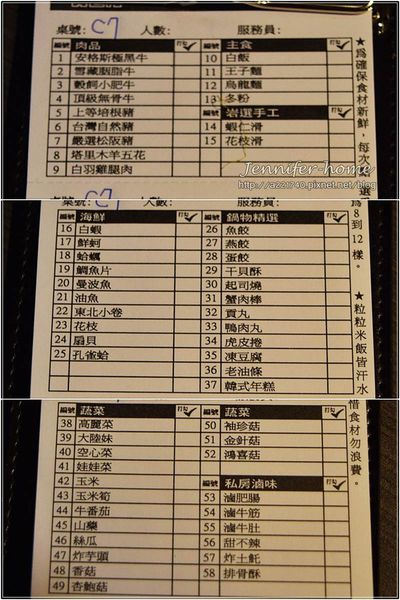 桌號: C7 人數: 服務員:
編號 肉品 打勾
1 安格斯極黑牛
2 雪藏胭脂牛
3 穀飼小肥牛
4 頂級無骨牛
5 上等培根豬
6 台灣自然豬
7 嚴選松阪豬
8 塔里木羊五花
9 白羽雞腿肉
編號 主食 打勾
10 白飯
11 王子麵
12 烏龍麵
13 冬粉
編號 岩選手工 打勾
14 蝦仁滑
15 花枝滑
★為確保食材新鮮,每次
Jennifer-home
http://a221740.pixnet.net/blog
桌號: C7 人數: 服務員:
編號 海鮮 打勾
16 白蝦
17 鮮蚵
18 蛤蠣
19 鯛魚片
20 曼波魚
21 油魚
22 東北小卷
23 花枝
24 扇貝
25 孔雀蛤
編號 鍋物精選 打勾
26 魚餃
27 燕餃
28 蛋餃
29 干貝酥
30 起司燒
31 蟹肉棒
32 貢丸
33 鴨肉丸
34 虎皮捲
35 凍豆腐
36 老油條
37 韓式年糕
為8到12樣。
★粒粒米飯皆汗水
編號 蔬菜 打勾
38 高麗菜
39 大陸妹
40 空心菜
41 娃娃菜
42 玉米
43 玉米筍
44 牛番茄
45 山藥
46 絲瓜
47 炸芋頭
48 香菇
49 杏鮑菇
編號 蔬菜 打勾
50 袖珍菇
51 金針菇
52 鴻喜菇
編號 私房滷味 打勾
53 滷肥腸
54 滷牛筋
55 滷牛肚
56 甜不辣
57 炸土魠
58 排骨酥
惜食材勿浪費。